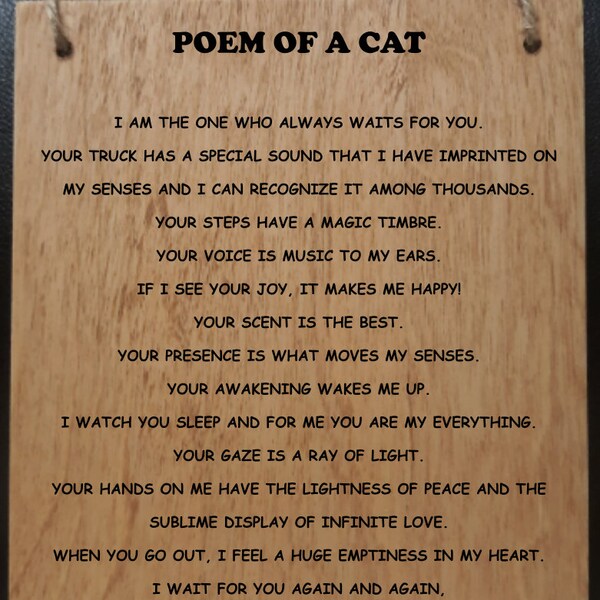 POEM OF A CAT
I AM THE ONE WHO ALWAYS WAITS FOR YOU.
YOUR TRUCK HAS A SPECIAL SOUND THAT I HAVE IMPRINTED ON
MY SENSES AND I CAN RECOGNIZE IT AMONG THOUSANDS.
YOUR STEPS HAVE A MAGIC TIMBRE.
YOUR VOICE IS MUSIC TO MY EARS.
IF I SEE YOUR JOY, IT MAKES ME HAPPY!
YOUR SCENT IS THE BEST.
YOUR PRESENCE IS WHAT MOVES MY SENSES.
YOUR AWAKENING WAKES ME UP.
I WATCH YOU SLEEP AND FOR ME YOU ARE MY EVERYTHING.
YOUR GAZE IS A RAY OF LIGHT.
YOUR HANDS ON ME HAVE THE LIGHTNESS OF PEACE AND THE
SUBLIME DISPLAY OF INFINITE LOVE.
WHEN YOU GO OUT, I FEEL A HUGE EMPTINESS IN MY HEART.
I WAIT FOR YOU AGAIN AND AGAIN,